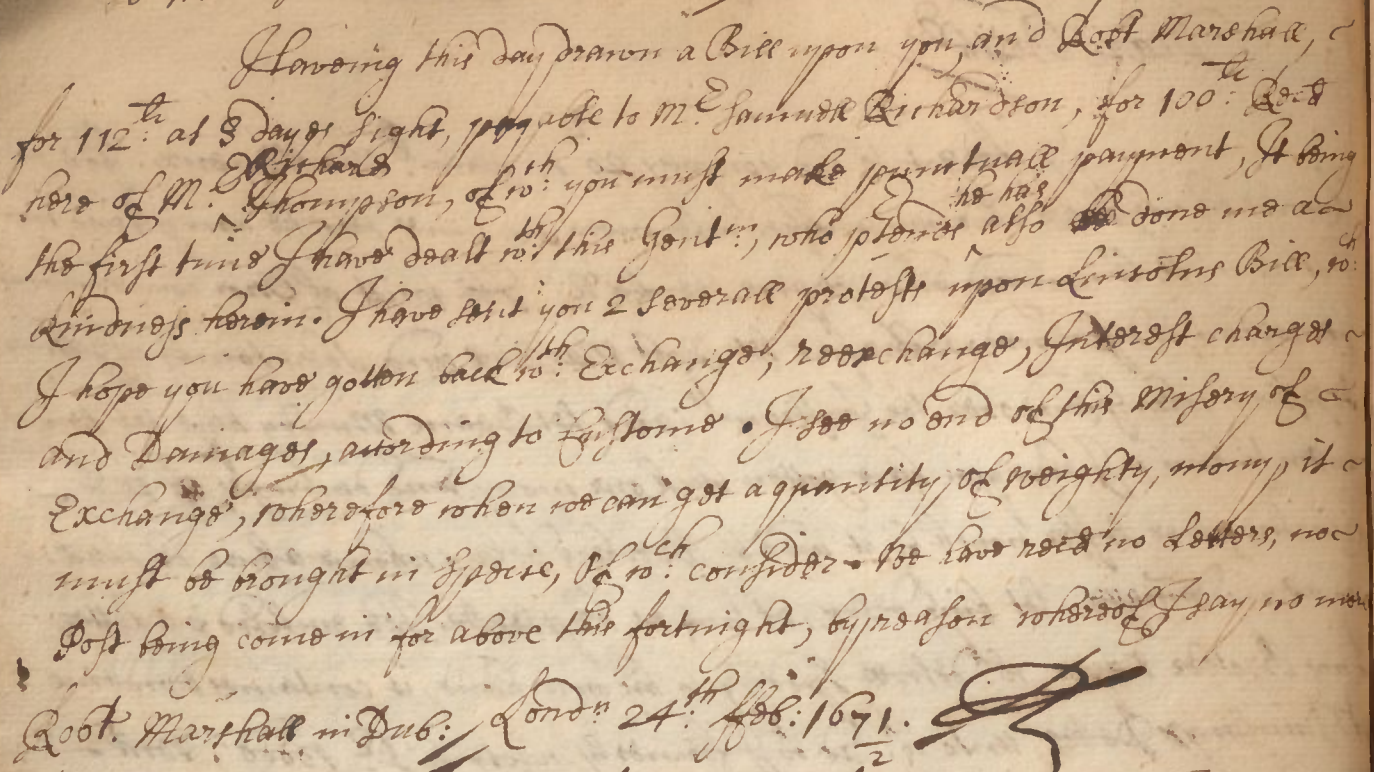 Haveing this day drawn a Bill upon you, and Robt Marshall,
for 112li: at 8 dayes sight, payable to Mr. Samuell Richardson, for 100li: Recd
here of Mr. Richard Thompson, of wch: you must make punctuall payment, It being
the first time I have dealt wth: this Gentm:, who ptends also he has done me a
kindness herein. I have sent you 2 severall protests upon Lincolns Bill, wch:
I hope you have gotten back wth: Exchange, reexchange, Interest charges
and Damages, according to Custome. I see no end of this Misery of
Exchange, wherefore when we can get a quantity of weighty mony, it
must be brought in specie, Of wch: consider. We have recd no Letters, no
Post being come in for above this fortnight, by reason whereof I say no more
Robt. Marshall in Dub: Londn 24th: ffeb: 1671/2.